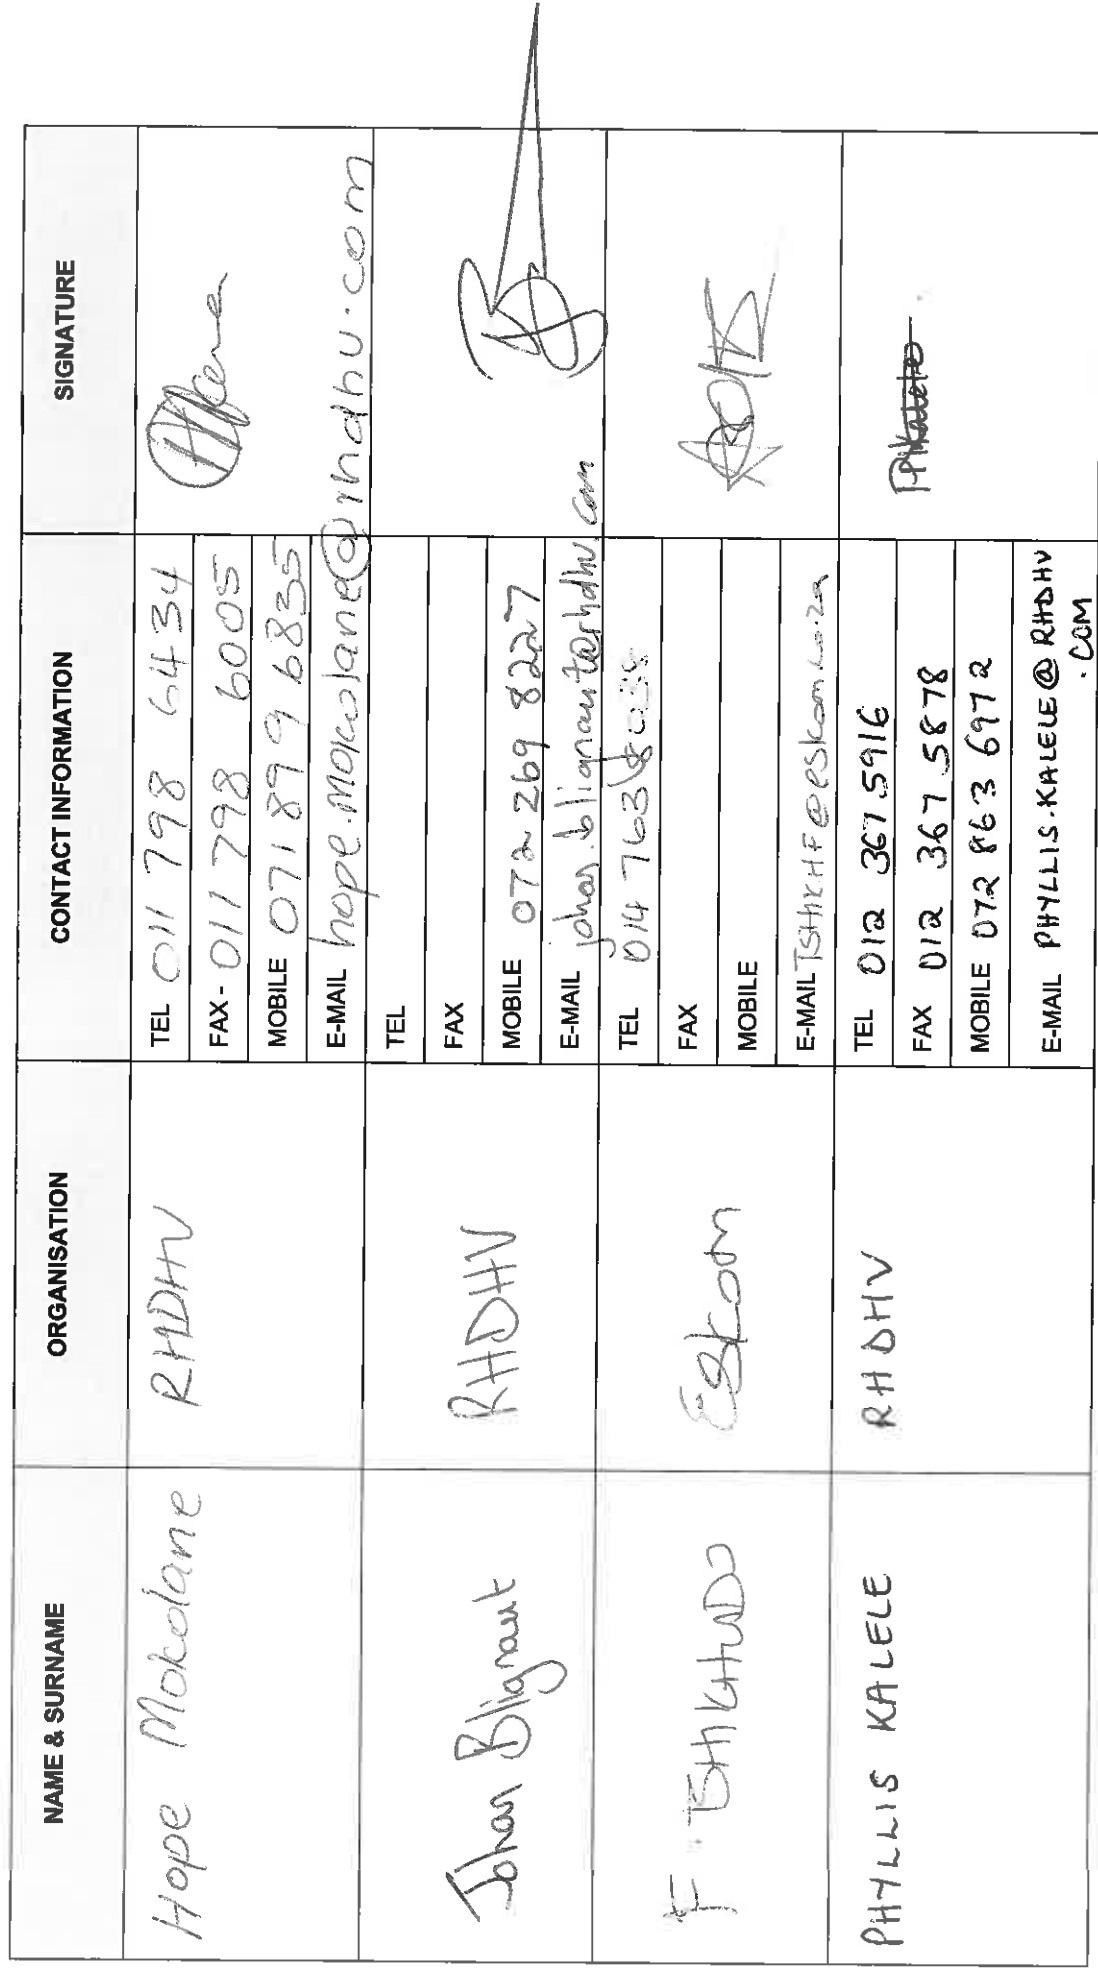 NAME & SURNAME
ORGANISATION
CONTACT INFORMATION
SIGNATURE
Hope Mokolane
RHDHV
TEL 011 798 6434
FAX - 011 798 6005
MOBILE 071 899 6835
E-MAIL hope.mokolane@rhdhv.com
Johan Blignaut
RHDHV
TEL
FAX
MOBILE 072 269 8227
E-MAIL johan.blignaut@rhdhv.com
F TSHIKHUDO
Eskom
TEL 014 763
FAX
MOBILE
E-MAIL TSHIKHF@eskom.co.za
PHYLLIS KALELE
RHDHV
TEL 012 367 5916
FAX 012 367 5878
MOBILE 072 863 6972
E-MAIL PHYLLIS.KALELE@RHDHV
.COM